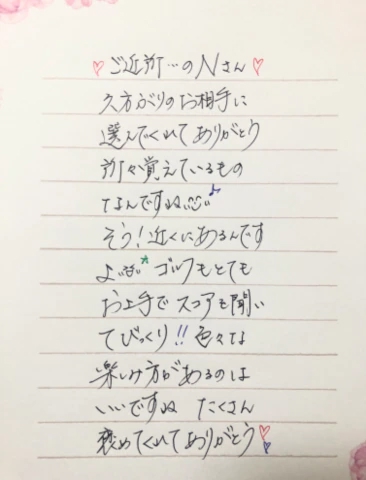 ♡ご近所…のNさん♡
久方ぶりのお相手に
選んでくれてありがとう
所々覚えているもの
なんですね♪
そう！近くにあるんです
よ ゴルフもとても
お上手でスコアも聞い
てびっくり!!色々な
楽しみ方があるのは
いいですね たくさん
褒めてくれてありがとう♡♡